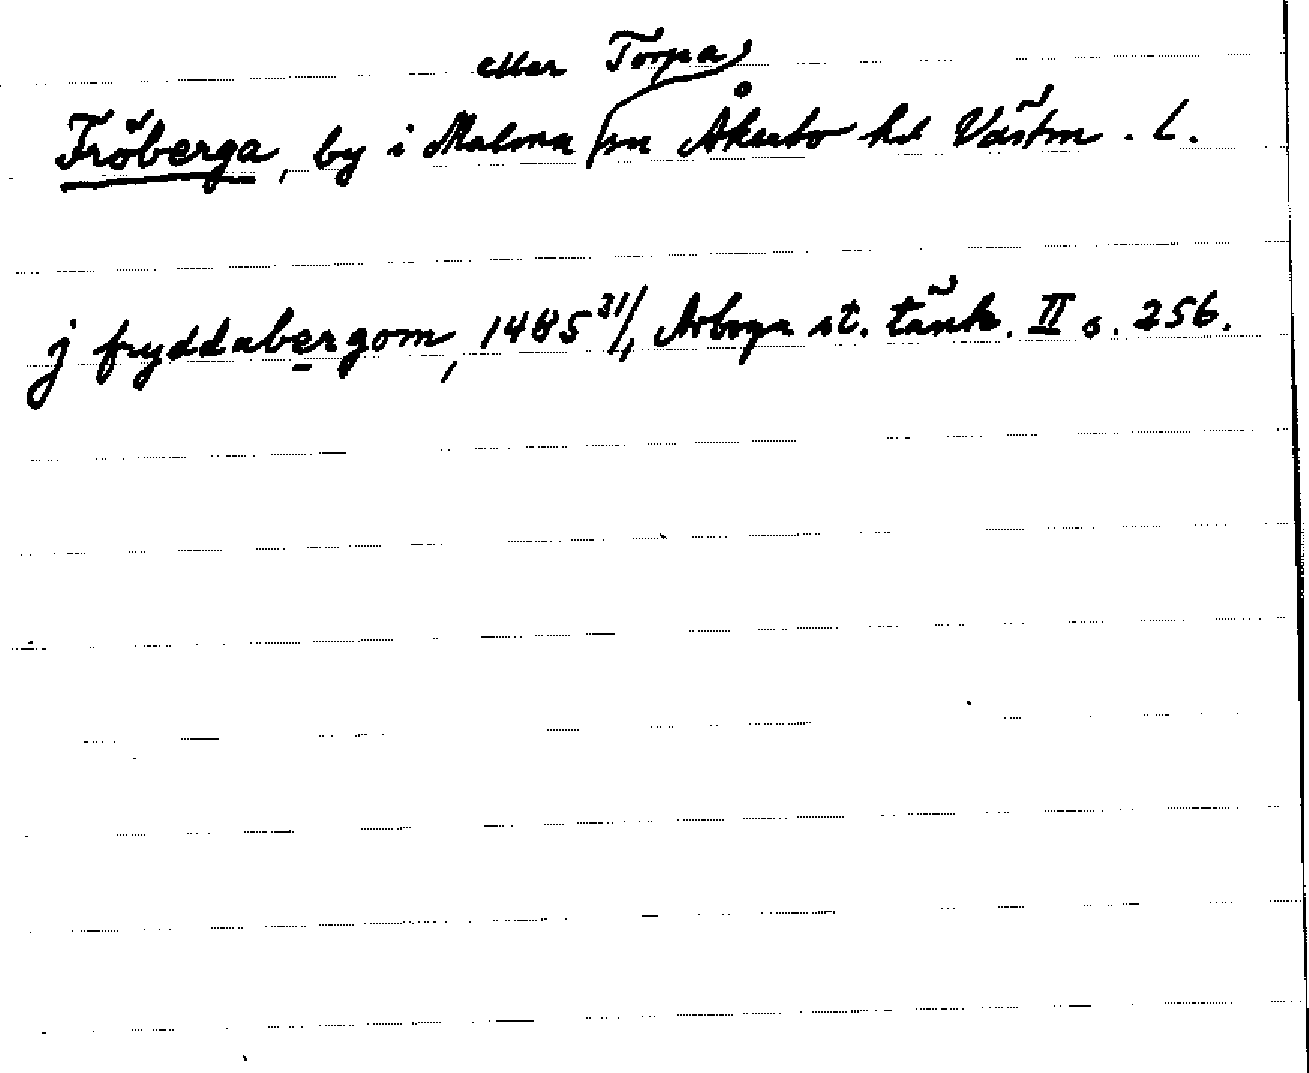 eller Torpa
Fröberga, by i Malma sn Åkerbo hd Västm. L.
j fryddabergom, 1485 31/1, Arboga st. tänk. II s. 256.